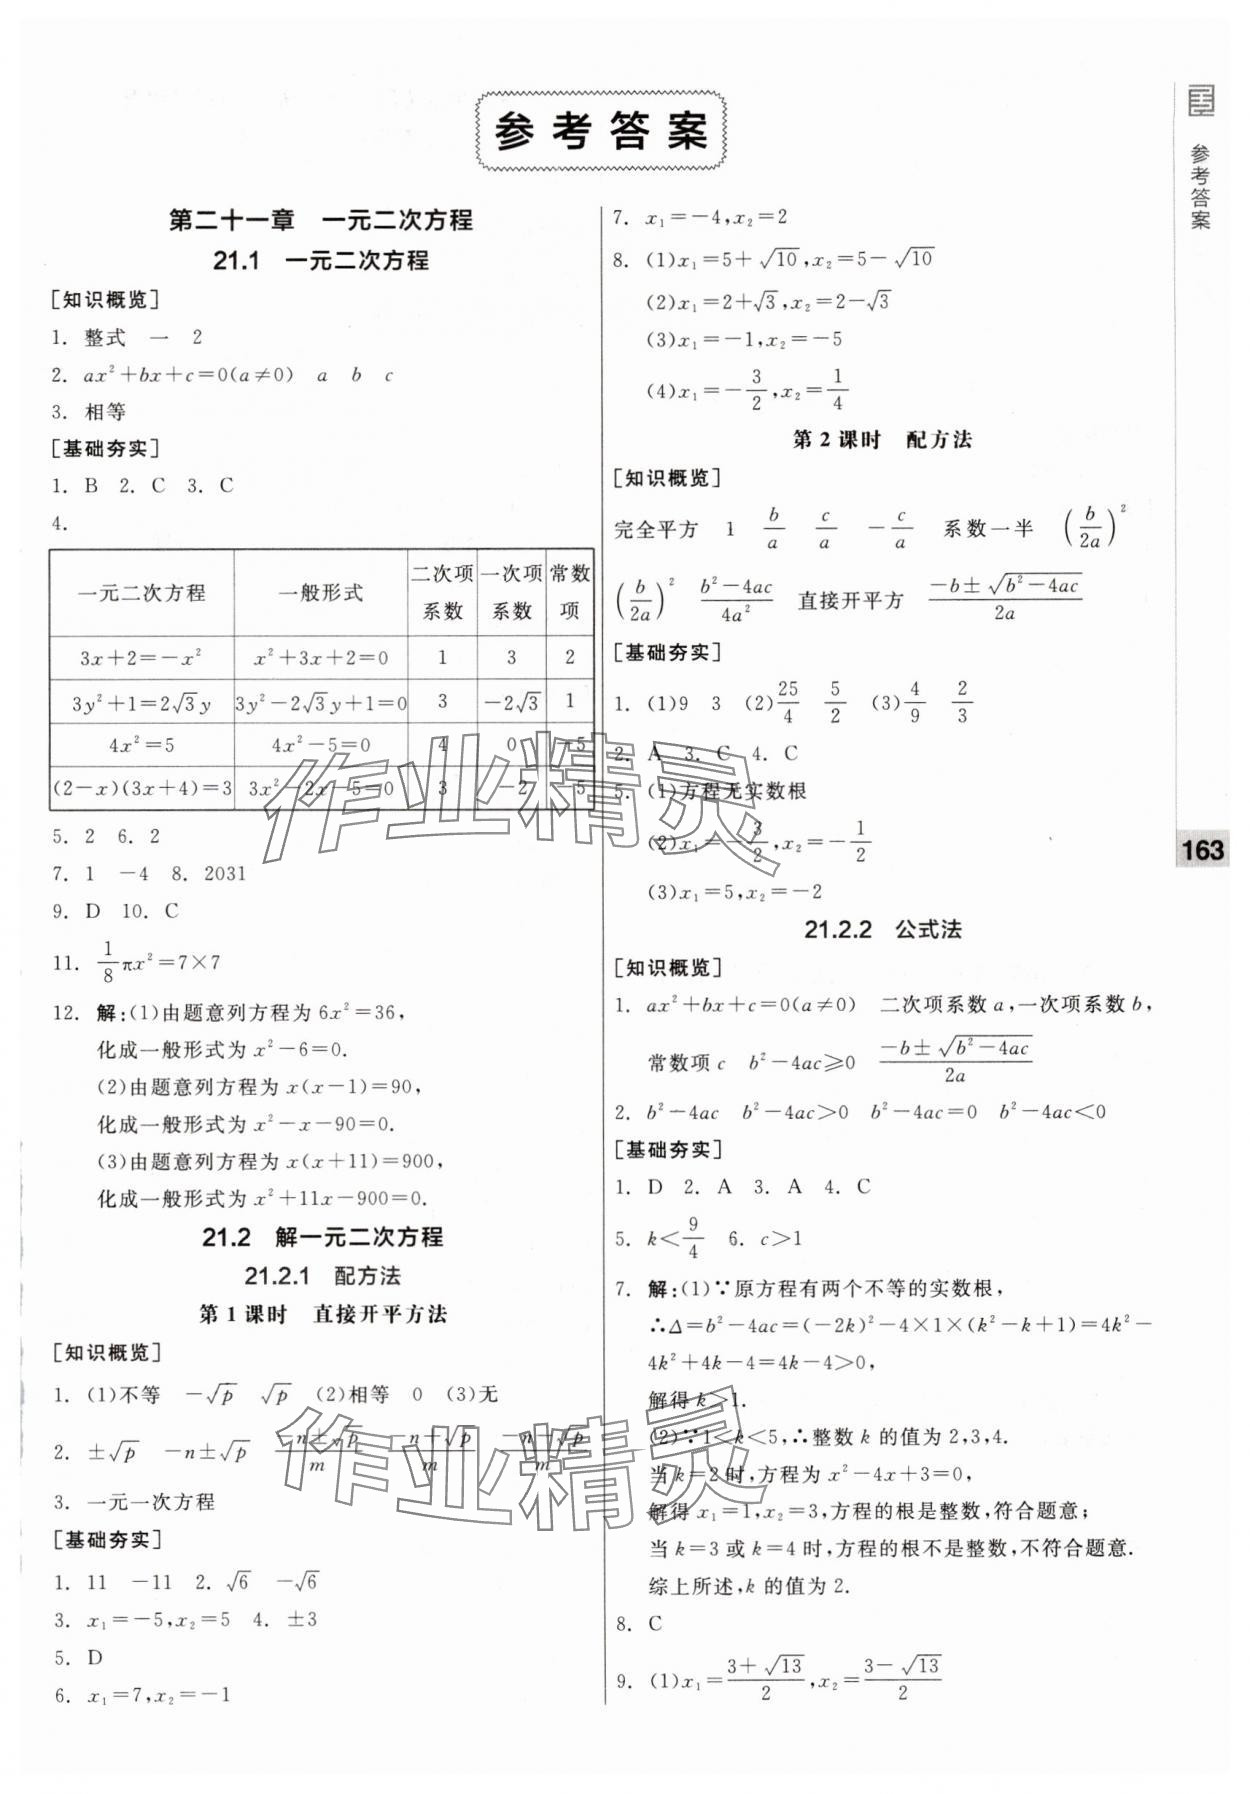 参考答案
第二十一章　一元二次方程
21.1　一元二次方程
[知识概览]
1. 整式　一　2
2. ax²+bx+c=0(a≠0)　a　b　c
3. 相等
[基础夯实]
1. B　2. C　3. C
4.
一元二次方程　一般形式　二次项系数　一次项系数　常数项
3x+2=-x²　x²+3x+2=0　1　3　2
3y²+1=2√3y　3y²-2√3y+1=0　3　-2√3　1
4x²=5　4x²-5=0　4　0　-5
(2-x)(3x+4)=3　3x²-2x-5=0　3　-2　-5
5. 2　6. 2
7. 1　-4　8. 2031
9. D　10. C
11. 1/8 πx²=7×7
12. 解:(1)由题意列方程为 6x²=36,
化成一般形式为 x²-6=0.
(2)由题意列方程为 x(x-1)=90,
化成一般形式为 x²-x-90=0.
(3)由题意列方程为 x(x+11)=900,
化成一般形式为 x²+11x-900=0.
21.2　解一元二次方程
21.2.1　配方法
第1课时　直接开平方法
[知识概览]
1. (1)不等　-√p　√p　(2)相等　0　(3)无
2. ±√p　-n±√p　(-n±√p)/m　(-n+√p)/m　(-n-√p)/m
3. 一元一次方程
[基础夯实]
1. 11　-11　2. √6　-√6
3. x₁=-5,x₂=5　4. ±3
5. D
6. x₁=7,x₂=-1
7. x₁=-4,x₂=2
8. (1)x₁=5+√10,x₂=5-√10
(2)x₁=2+√3,x₂=2-√3
(3)x₁=-1,x₂=-5
(4)x₁=-3/2,x₂=1/4
第2课时　配方法
[知识概览]
完全平方　1　b/a　c/a　-c/a　系数一半　(b/2a)²
(b/2a)²　(b²-4ac)/4a²　直接开平方　(-b±√(b²-4ac))/2a
[基础夯实]
1. (1)9　3　(2)25/4　5/2　(3)4/9　2/3
2. A　3. C　4. C
5. (1)方程无实数根
(2)x₁=-3/2,x₂=-1/2
(3)x₁=5,x₂=-2
21.2.2　公式法
[知识概览]
1. ax²+bx+c=0(a≠0)　二次项系数a,一次项系数b,
常数项c　b²-4ac≥0　(-b±√(b²-4ac))/2a
2. b²-4ac　b²-4ac>0　b²-4ac=0　b²-4ac<0
[基础夯实]
1. D　2. A　3. A　4. C
5. k<9/4　6. c>1
7. 解:(1)∵原方程有两个不等的实数根,
∴Δ=b²-4ac=(-2k)²-4×1×(k²-k+1)=4k²-
4k²+4k-4=4k-4>0,
解得 k>1.
(2)∵1<k<5,∴整数 k 的值为 2,3,4.
当 k=2 时,方程为 x²-4x+3=0,
解得 x₁=1,x₂=3,方程的根是整数,符合题意;
当 k=3 或 k=4 时,方程的根不是整数,不符合题意.
综上所述,k 的值为 2.
8. C
9. (1)x₁=(3+√13)/2,x₂=(3-√13)/2
参考答案
163
作业精灵
作业精灵